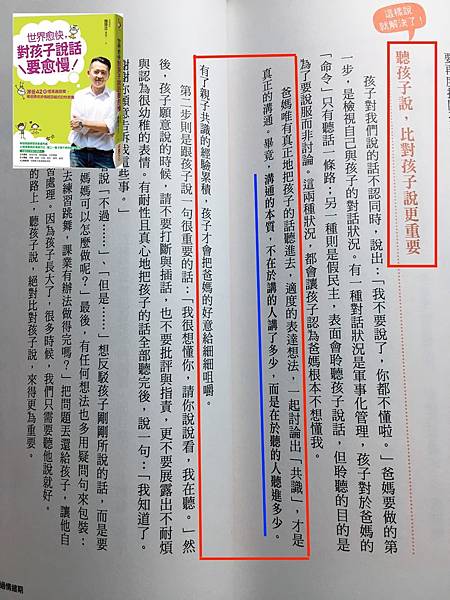 這樣說
就解決了！
聽孩子說，比對孩子說更重要
孩子對我們說的話不認同時，說出：「我不要說了，你都不懂啦。」爸媽要做的第
一步，是檢視自己與孩子的對話狀況。有一種對話狀況是軍事化管理，孩子對於爸媽的
「命令」只有聽話一條路；另一種則是假民主，表面會聆聽孩子說話，但聆聽的目的是
為了要說服而非討論。這兩種狀況，都會讓孩子認為爸媽根本不想懂我。
爸媽唯有真正地把孩子的話聽進去，適度的表達想法，一起討論出「共識」，才是
真正的溝通。畢竟，溝通的本質，不在於講的人講了多少，而是在於聽的人聽進多少。
有了親子共識的經驗累積，孩子才會把爸媽的好意給細細咀嚼。
第二步則是跟孩子說一句很重要的話：「我很想懂你，請你說說看，我在聽。」然
後，孩子願意說的時候，請不要打斷與插話，也不要批評與指責，更不要展露出不耐煩
與認為很幼稚的表情。有耐性且真心地把孩子的話全部聽完後，說一句：「我知道了。
謝謝你願意告訴我這些事。」
說「不過……」、「但是……」想反駁孩子剛剛所說的話，而是要
媽媽可以怎麼做呢？」最後，有任何想法也多用疑問句來包裝：
法練習跳舞，課業有辦法做得完嗎？」把問題丟還給孩子，讓他自
習處理。因為孩子長大了，很多時候，我們只需要聽他說就好。
的路上，聽孩子說，絕對比對孩子說，來得更為重要。
世界愈快，
對孩子說話
要愈慢！